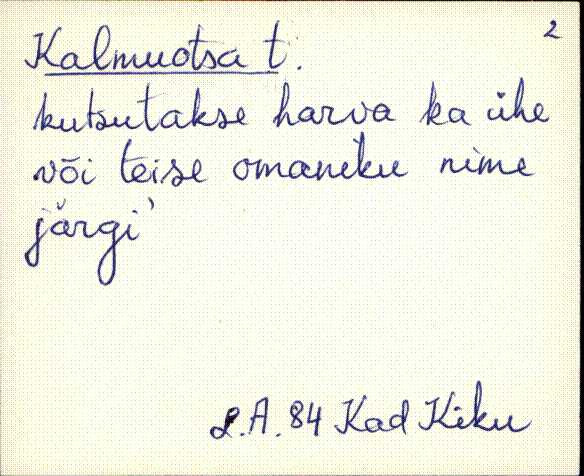 2
Kalmuotsa t.
kutsutakse harva ka ühe
või teise omaniku nime
järgi'
L.A.84 Kad Kiku